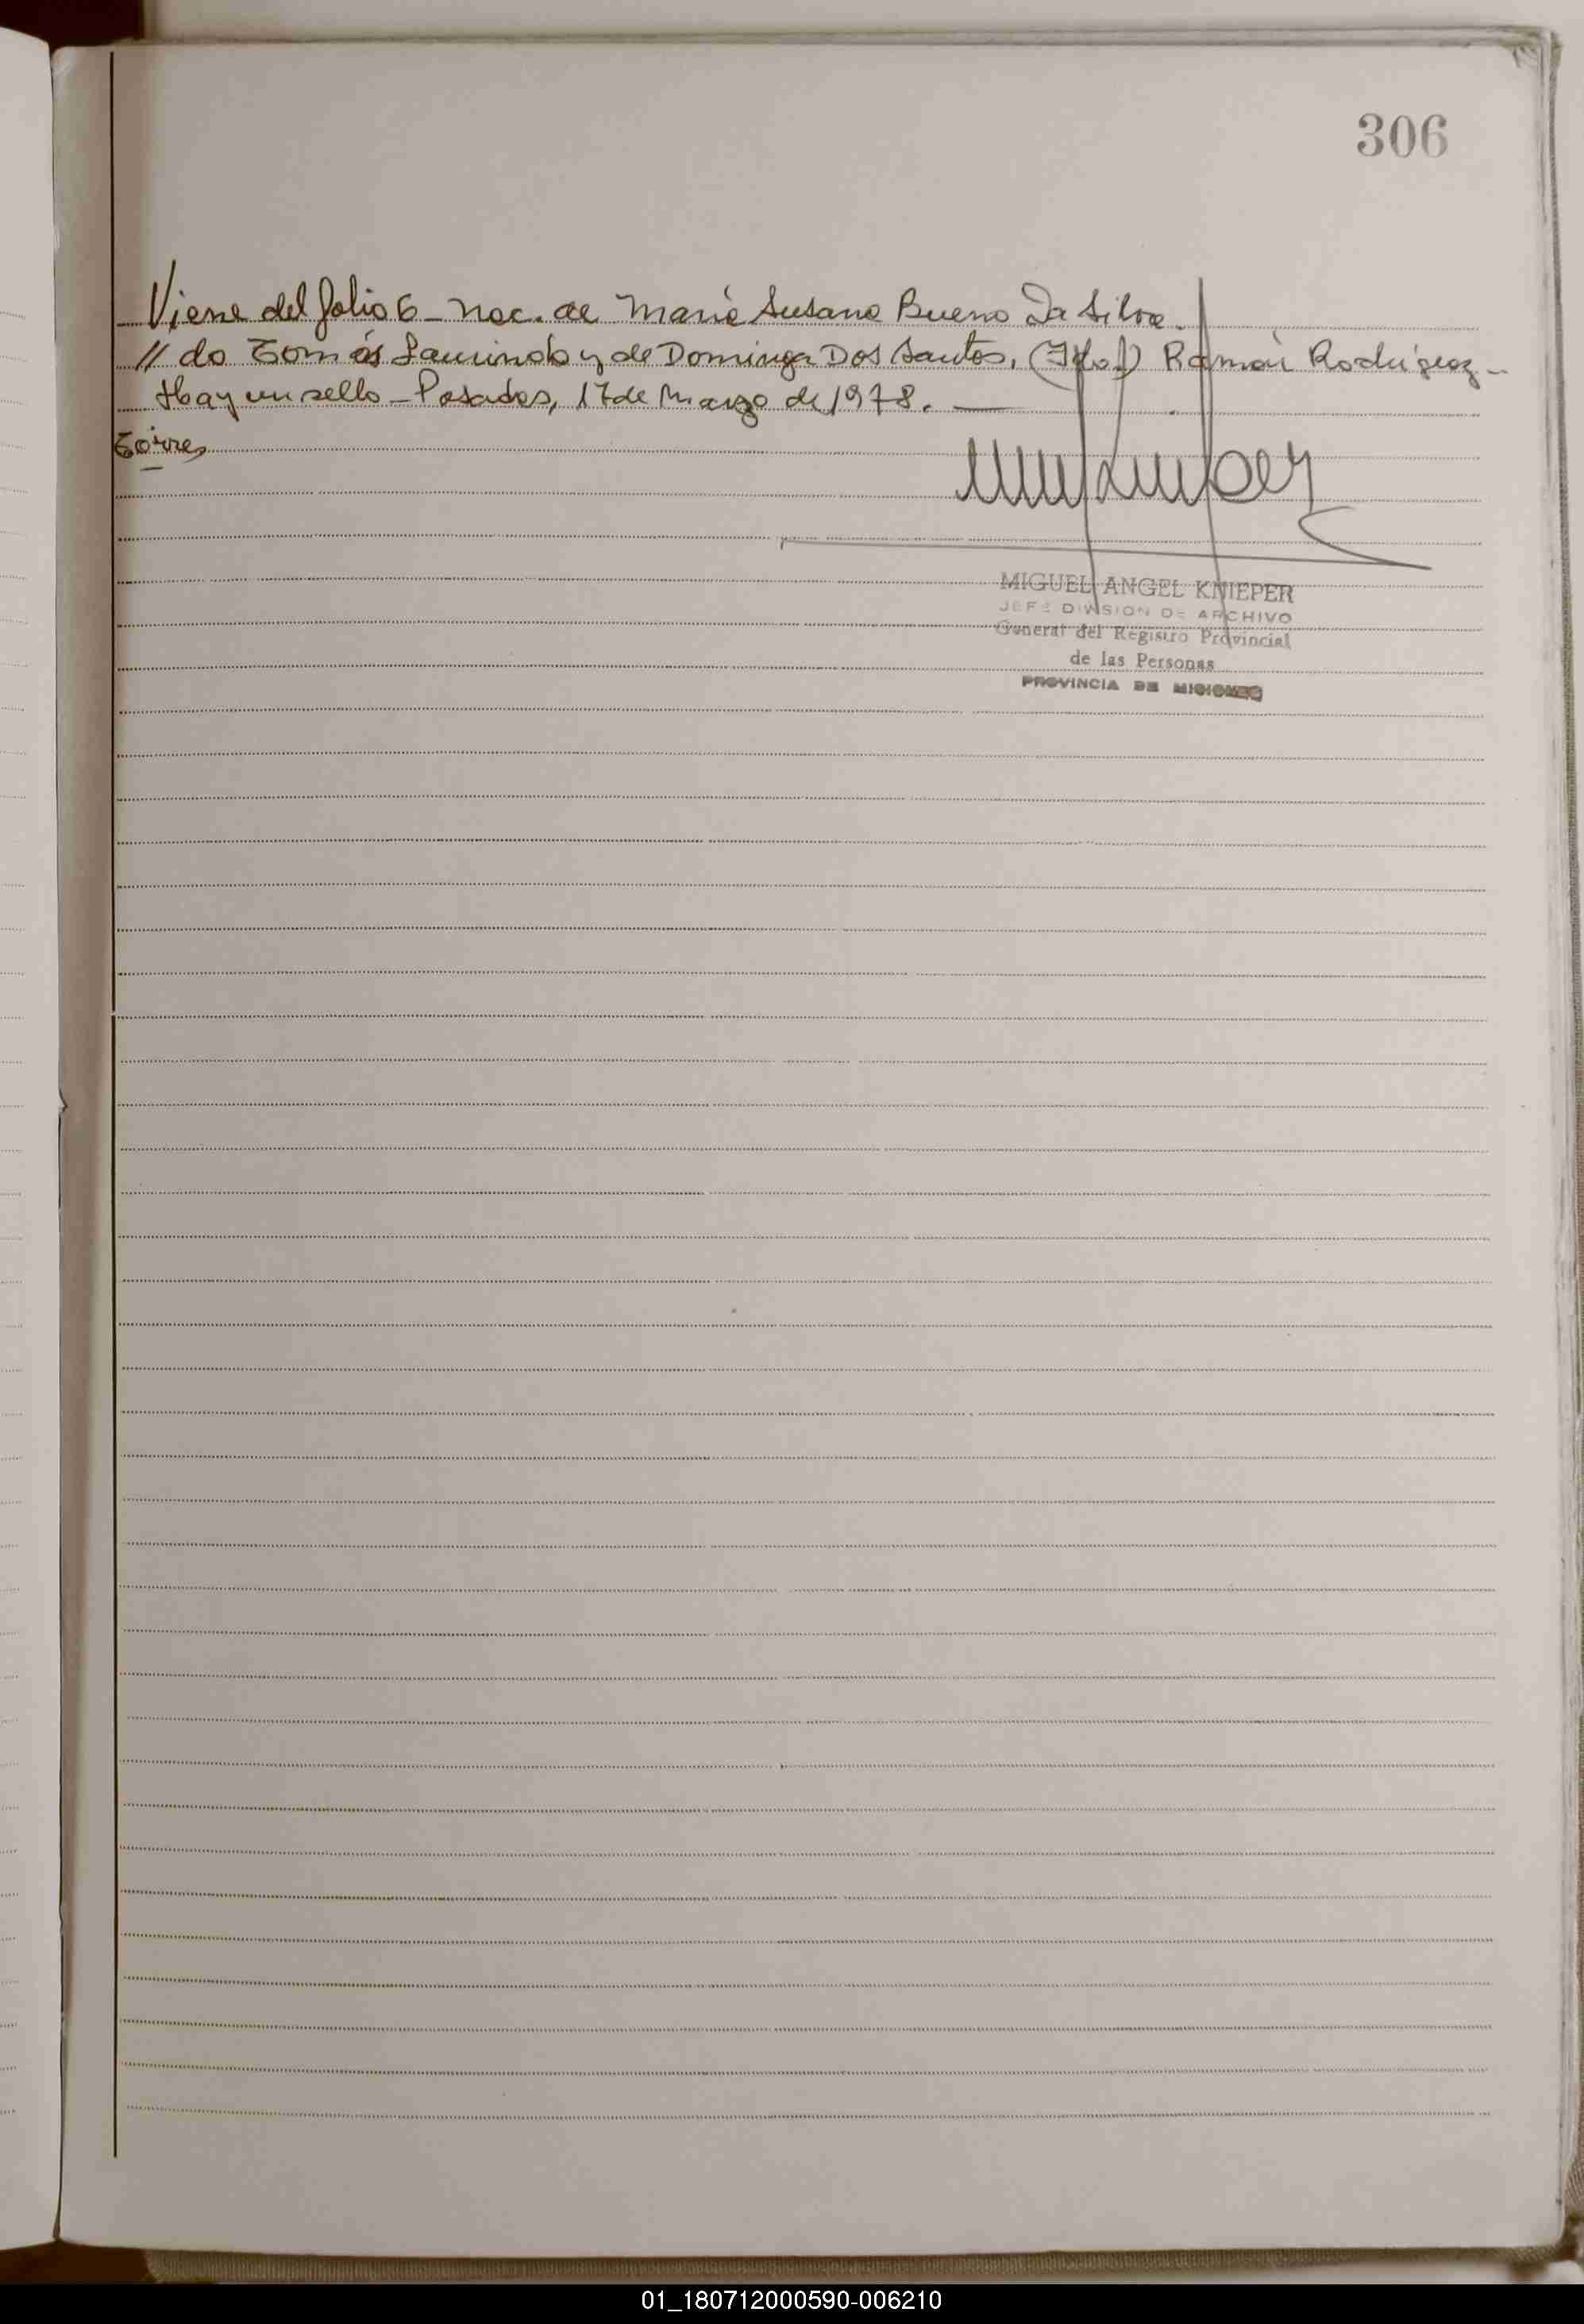 306
Viene del folio 6 - Nac. de María Susana Bueno Da Silva.
// do Tomás Laurindo y de Dominga Dos Santos, (Fdo.) Ramón Rodríguez -
Hay un sello - Posadas, 17 de Marzo de 1978. —
Torres
MIGUEL ANGEL KNIEPER
JEFE DIVISION DE ARCHIVO
General del Registro Provincial
de las Personas
PROVINCIA DE MISIONES
01_180712000590-006210